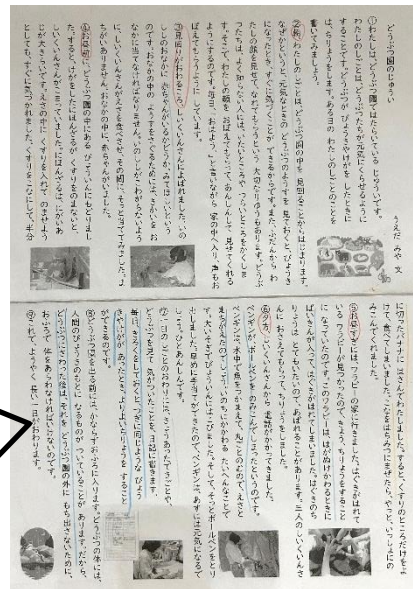 どうぶつ園のじゅうい
うえだ みや 文
①わたしは、どうぶつ園ではたらいている じゅういです。
わたしのしごとは、どうぶつたちが元気にくらせるように
することです。どうぶつが びょうきやけがをしたときに
は、ちりょうをします。ある日の わたしのしごとのことを
書いてみましょう。
②朝、わたしのしごとは、どうぶつ園の中を 見回ることからはじまります。
なぜかというと、元気なときの どうぶつのようすを 見ておくと、びょうき
になったとき、すぐに気づくことが できるからです。また、ふだんから わ
たしの顔を見せて、なれてもらうという 大切なりゆうもあります。どうぶ
つたちは、よく知らない人には、いたいところや つらいところをかくします。
そこで、わたしの顔を おぼえてもらって、あんしんして 見せてくれる
ようにするのです。毎日、「おはよう。」と言いながら 家の中へ入り、声もお
ぼえてもらうように しています。
③見回りがおわるころ、しいくいんさんによばれました。いの
ししのおなかに 赤ちゃんがいるかどうか、みてほしいという
のです。おなかの中の ようすをさぐるためには、きかいを お
なかに当てなければなりません。いのししがこわがらないよう
に、しいくいんさんがえさを食べさせ、その間に、そっと当ててみました。ま
ちがいありません。おなかの中に、赤ちゃんがいました。
④お昼前に、どうぶつ園の中にある びょういんにもどりまし
た。すると、けがをしたにほんざるが くすりをのまないと、
しいくいんさんが こまっていました。にほんざるは、にがいあ
じが大きらいです。えさの中に くすりを入れて のませよう
としても、すぐに気づかれました。くすりをこなにして、半分
に切ったバナナに はさんでわたしました。すると、くすりのところだけをよ
けて、食べてしまいました。こなをはちみつにまぜたら、やっと、いっしょにの
みこんでくれました。
⑤お昼すぎには、ワラビーの家に行きました。はぐきがはれて
いる ワラビーが見つかったので、きょう、ちりょうをすること
になっていたのです。このワラビーは はがぬけかわるときに
ばいきんが入って、はぐきがはれてしまいました。はぐきのち
りょうは、とてもいたいので、あばれることがあります。三人のしいくいんさ
んに おさえてもらって、ちりょうをしました。
⑥夕方、しいくいんさんから 電話がかかってきました。
ペンギンが、ボールペンを のみこんでしまったというのです。
ペンギンは、水中で魚をつかまえて、丸ごとのむので、えさと
まちがえたのでしょう。いのちにかかわる たいへんなことで
す。大いそぎでびょういんにはこびました。そして、そっとボールペンをとり
出しました。早めに手当てができたので、ペンギンは、あすには元気になるで
しょう。ひとあんしんです。
⑦一日のしごとのおわりには、きょうあったできごとや、
どうぶつを見て 気がついたことを、日記に書きます。
毎日、きろくをしておくと、つぎに同じような びょう
きやけががあったとき、よりよいちりょうを すること
ができるのです。
⑧どうぶつ園を出る前には、かならずおふろに入ります。どうぶつの体には、
人間のびょうきのもとに なるものが ついていることが あります。だから、
どうぶつにさわった後は、それを どうぶつ園の外に もち出さないために、
おふろで 体をあらわなければいけないのです。
⑨これで、ようやく長い一日がおわります。